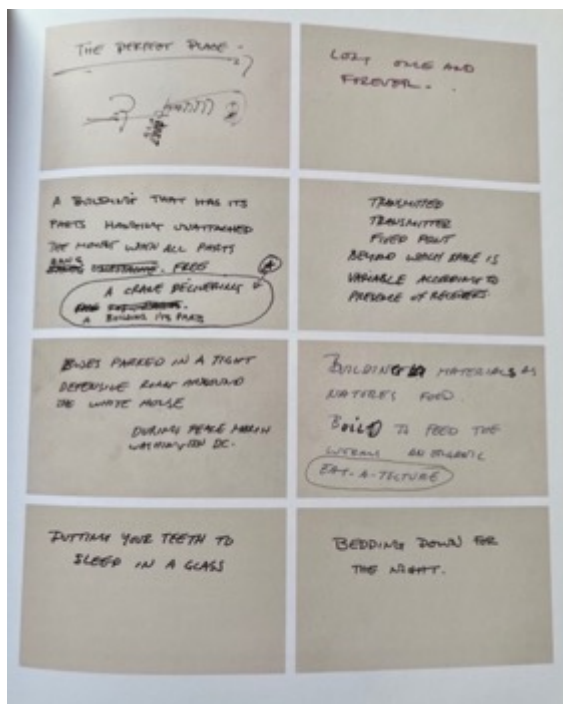 THE PERFECT PLACE.
LOST ONCE AND
FOREVER.
A BUILDING THAT HAS ITS
PARTS HANGING UNATTACHED
THE MOMENT WHEN ALL PARTS
HANG FREE
A CRANE DELIVERING
A BUILDING ITS PARTS
TRANSMITTED
TRANSMITTER
FIXED POINT
BEYOND WHICH SPACE IS
VARIABLE ACCORDING TO
PRESENCE OF RECEIVERS.
BUSES PARKED IN A TIGHT
DEFENSIVE RING AROUND
THE WHITE HOUSE
DURING PEACE MARCH
WASHINGTON DC.
BUILDING MATERIALS AS
NATURES FOOD.
BUILD TO FEED THE
AN ORGANIC
EAT-A-TECTURE
PUTTING YOUR TEETH TO
SLEEP IN A GLASS
BEDDING DOWN FOR
THE NIGHT.